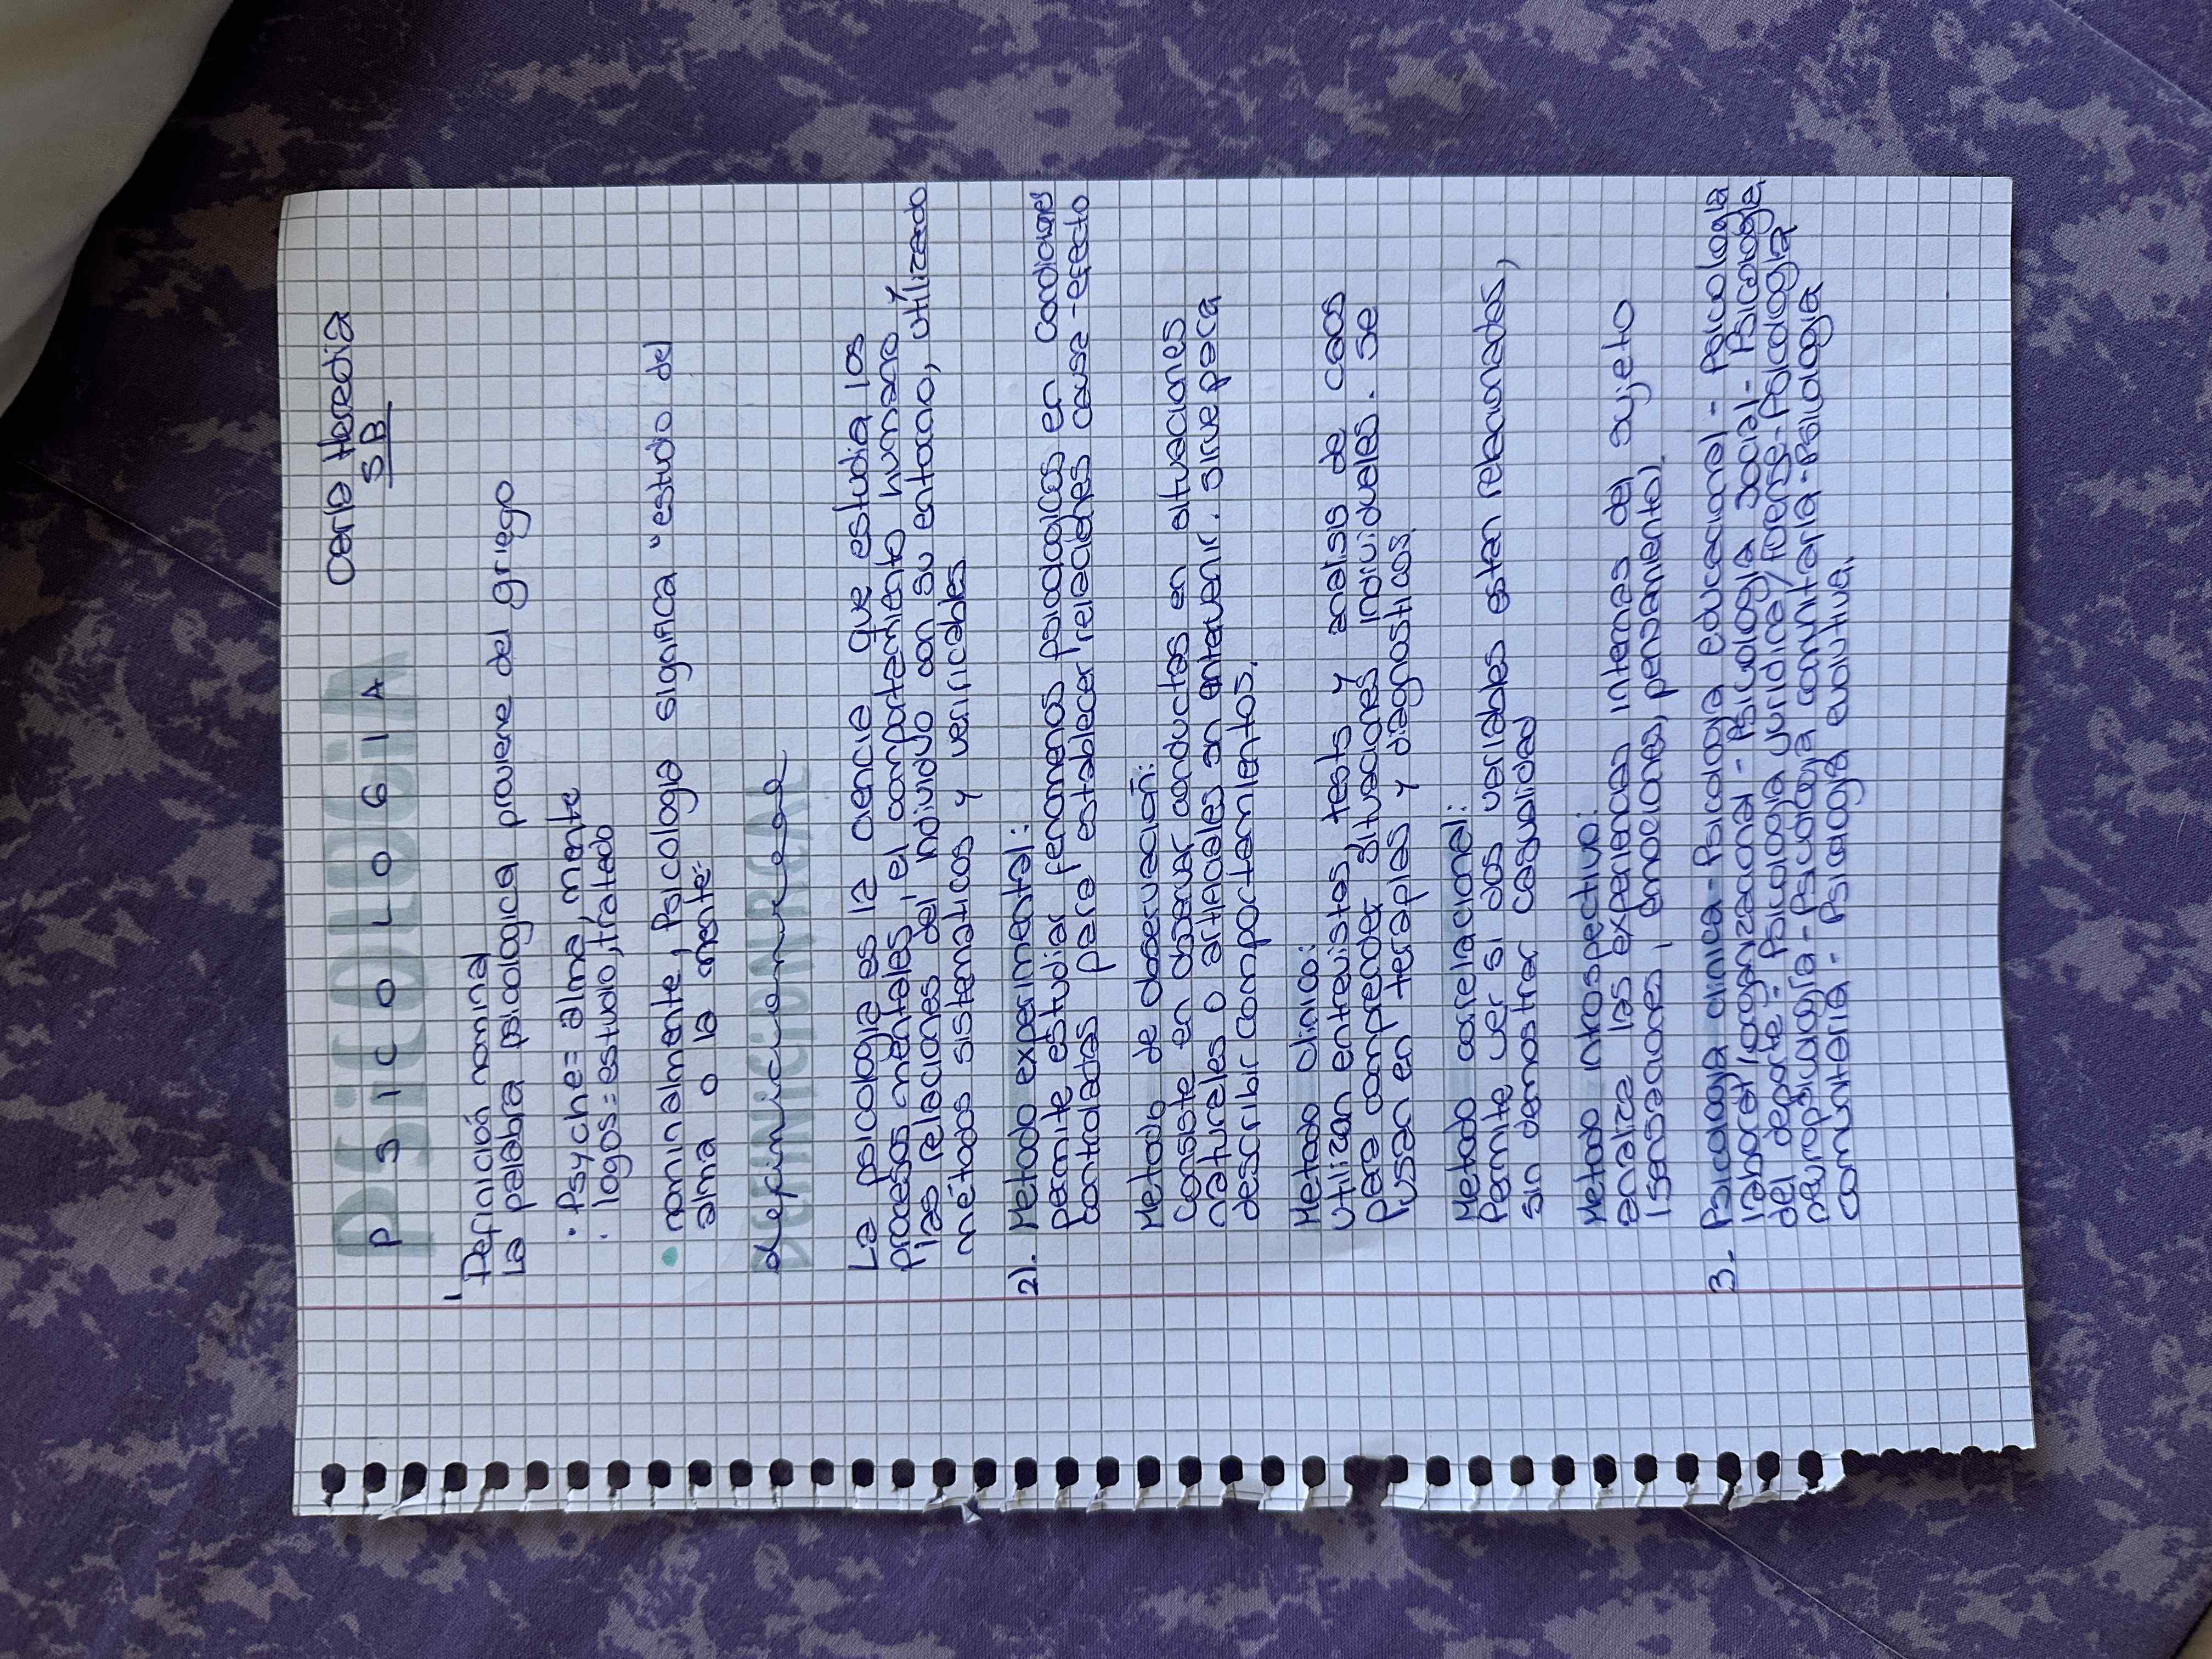 PSICOLOGIA
Carla Heredia
5B
Definición nominal
La palabra psicologica proviene del griego
· Psyche = alma, mente
· logos = estudio, tratado
• nominalmente, Psicologia significa "estudio del
alma o la mente"
definicion real
La psicologia es la ciencia que estudia los
procesos mentales, el comportamiento humano y
las relaciones del individuo con su entorno, utilizado
métodos sistematicos y verificables
2). Metodo experimental:
permite estudiar fenomenos psicologicos en condiciones
controladas para establecer relaciones causa-efecto
Metodo de observación:
consiste en observar conductas en situaciones
naturales o artificiales sin intervenir. sirve para
describir comportamientos.
Metodo clinico:
utilizan entrevistas, tests y analisis de casos
para comprender situaciones individuales. se
usan en terapias y diagnosticos.
Metodo correlacional:
Permite ver si dos variables estan relacionadas,
sin demostrar casualidad
Metodo introspectivo:
analiza las experiencias internas del sujeto
(sensaciones, emociones, pensamiento).
3. Psicologia clinica - Psicologia educacional - Psicologia
laboral/organizacional - Psicologia social - Psicologia
del deporte - Psicologia juridica/forense - Psicologia
neuropsicologia - Psicologia comunitaria - Psicologia
comunitaria - Psicologia evolutiva.